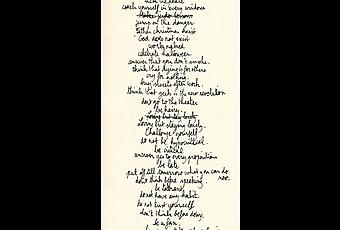 coach yourself in every window
jump in the danger
father christmas exist
God does not exist
work naked
celebrate halloween
answer that you don't smoke.
think that dying is for others
cry for nothing.
buy sweets after work.
think that geek is the new revolution
don't go to the theater
be hairy.
worry but staying lonely.
challenge yourself
do not be hypocritical.
be critical
answer yes to every proposition
be late
put off till tomorrow what you can do now.
don't think before speaking
be
do not have any habit.
do not trust yourself
don't think before doing.
be a fan.